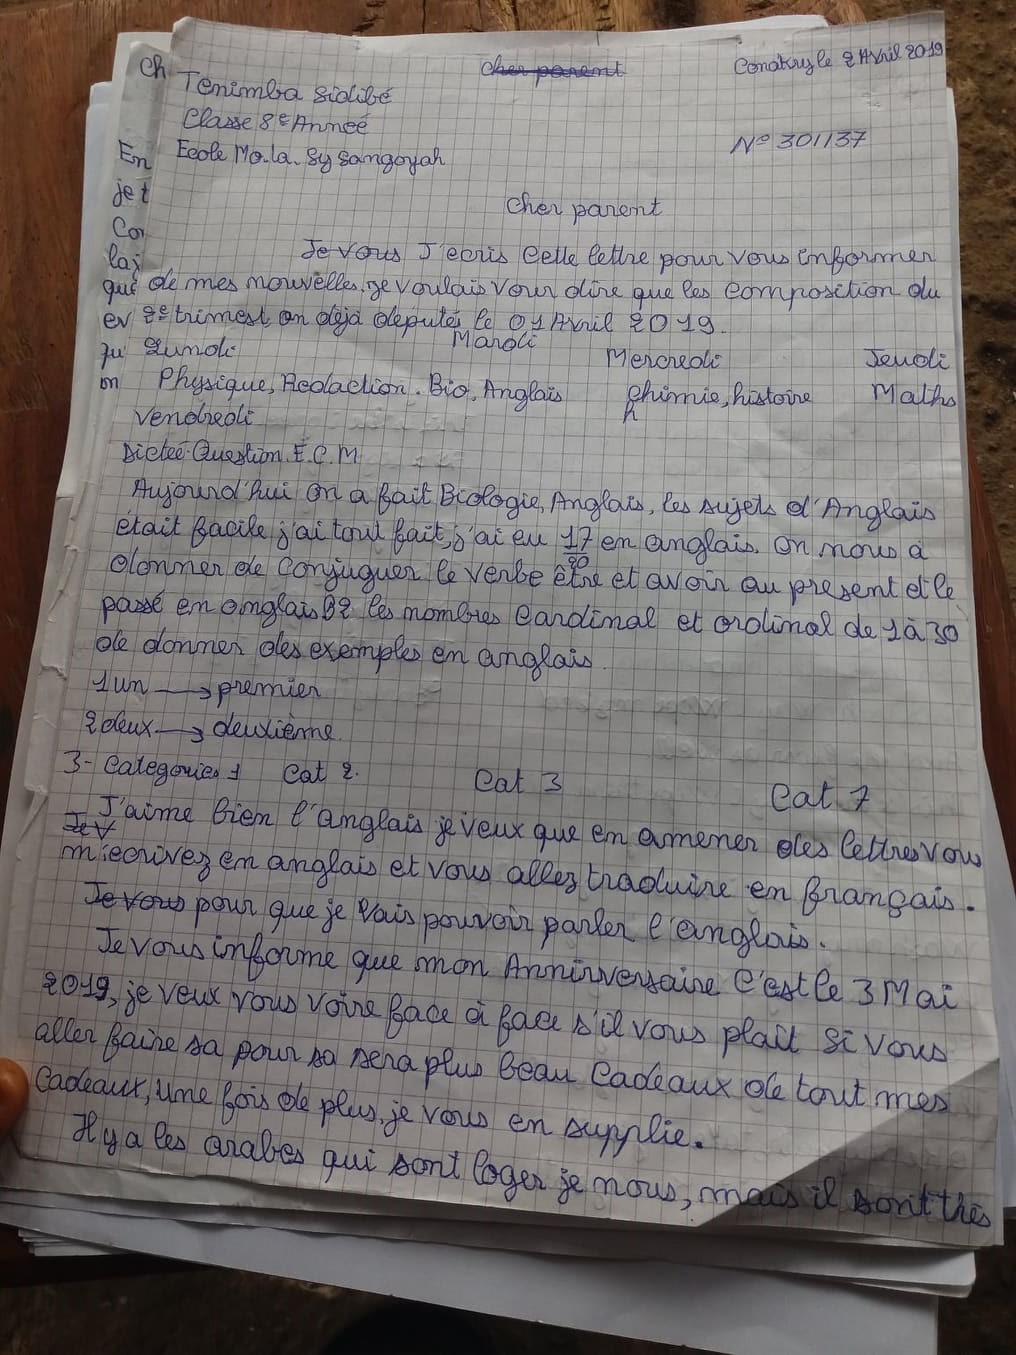 Cher parent
Conakry le 2 Avril 2019
Tenimba Sidibé
Classe 8e Anneé
N° 301137
Ecole Mo.la. Sy Sangoyah
Cher parent
Je vous J'ecris Cette lettre pour vous informer
de mes nouvelles, je voulais vour dire que les composition du
2e trimest, on dėjà deputés le 01 Avril 2019.
Lundi Mardi Mercredi Jeudi
Physique, Redaction. Bio, Anglais chimie, histoire Maths
Vendredi
Dicteé Question. E.C.M
Aujourd'hui on a fait Biologie, Anglais, les sujets d'Anglais
était facile j'ai tout fait, j'ai eu 17/20 en anglais. on nous a
donner de Conjuguer le verbe être et avoir au present et le
passé en anglais B2 les nombres Cardinal et ordinal de 1 à 30
de donner des exemples en anglais.
1 un → premier
2 deux → deuxième.
3- Categories 1 Cat 2. Cat 3 Cat 7
J'aime bien l'anglais je veux que en amener des lettres vous
Je V
m'ecrivez en anglais et vous allez traduire en français.
Je vous pour que je vais pouvoir parler l'anglais.
Je vous informe que mon Annirversaire C'est le 3 Mai
2019, je veux vous voire face à face s'il vous plait Si vous
aller faire sa pour sa sera plus beau Cadeaux de tout mes
Cadeaux, Une fois de plus, je vous en supplie.
Il y a les arabes qui sont loger je nous, mais il sont très
Ch
En
jet
Co
laj
que
ev
Ju
on